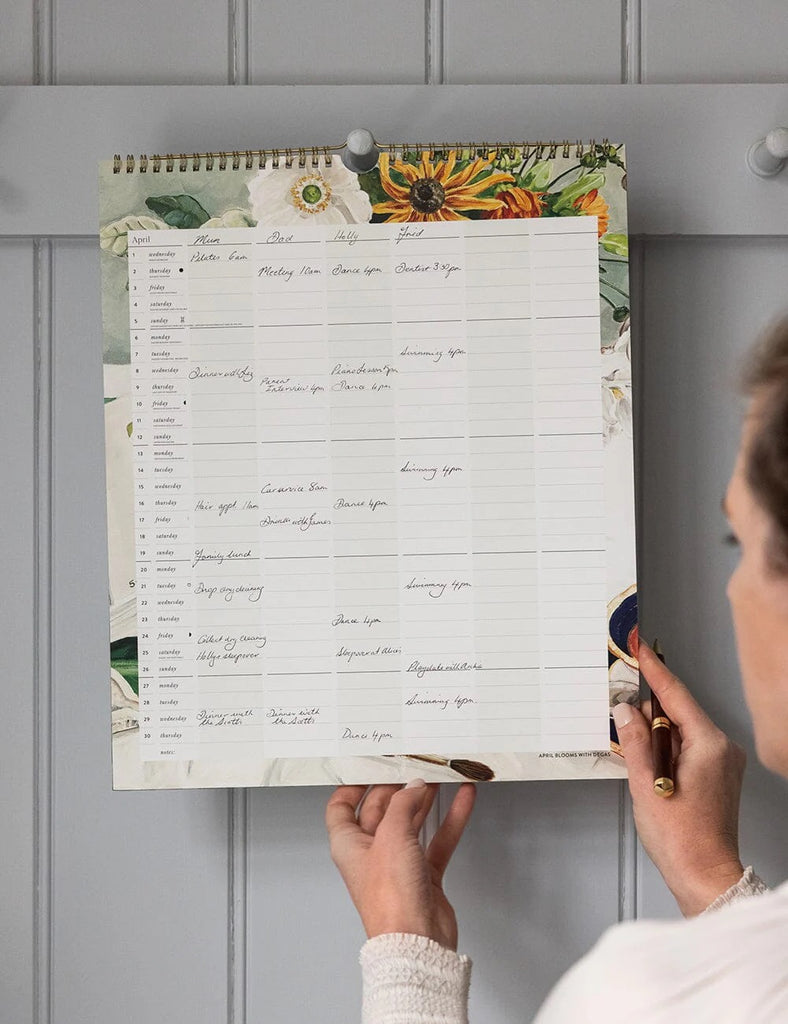 April Mum Dad Holly
1 wednesday Pilates 6am
2 thursday Meeting 10am Dance 4pm Dentist 3:30pm
3 friday
4 saturday
5 sunday
6 monday
7 tuesday Swimming 4pm
8 wednesday Dinner with Piano Lesson
9 thursday Parent Interview 4pm Dance 4pm
10 friday
11 saturday
12 sunday
13 monday
14 tuesday Swimming 4pm
15 wednesday Car service 8am
16 thursday Hair appt 11am Dance 4pm
17 friday with James
18 saturday
19 sunday Family lunch
20 monday
21 tuesday Drop dry cleaning Swimming 4pm
22 wednesday
23 thursday Dance 4pm
24 friday Collect dry cleaning
25 saturday Hollys sleepover Sleepover at
26 sunday Playdate with
27 monday
28 tuesday Swimming 4pm.
29 wednesday Dinner with the Scotts Dinner with the Scotts
30 thursday Dance 4pm
notes:
APRIL BLOOMS WITH DEGAS